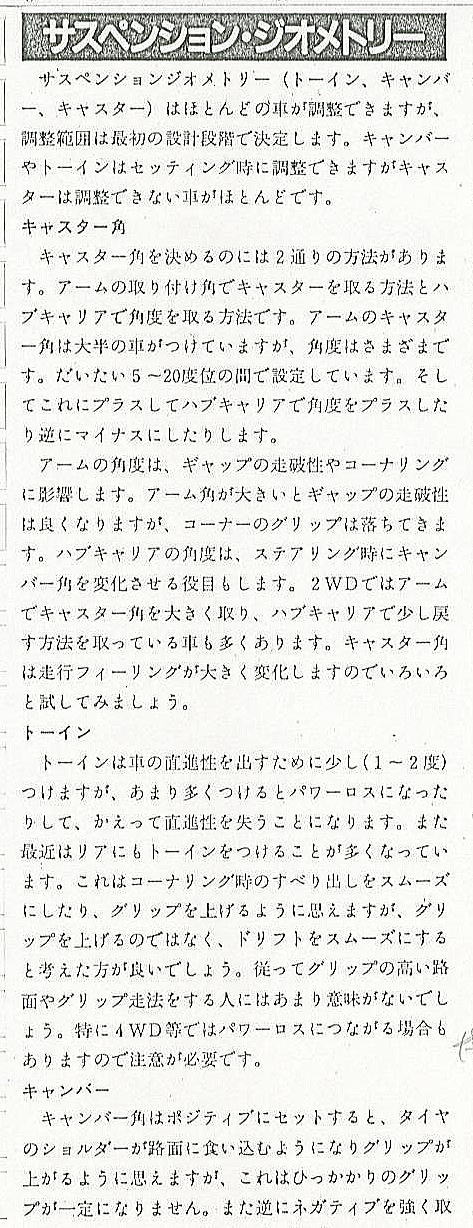 サスペンション・ジオメトリー
サスペンションジオメトリー(トーイン、キャンバ
ー、キャスター)はほとんどの車が調整できますが、
調整範囲は最初の設計段階で決定します。キャンバー
やトーインはセッティング時に調整できますがキャス
ターは調整できない車がほとんどです。
キャスター角
キャスター角を決めるのには2通りの方法がありま
す。アームの取り付け角でキャスターを取る方法とハ
ブキャリアで角度を取る方法です。アームのキャスタ
ー角は大半の車がつけていますが、角度はさまざまで
す。だいたい5〜20度位の間で設定しています。そし
てこれにプラスしてハブキャリアで角度をプラスした
り逆にマイナスにしたりします。
アームの角度は、ギャップの走破性やコーナリング
に影響します。アーム角が大きいとギャップの走破性
は良くなりますが、コーナーのグリップは落ちてきま
す。ハブキャリアの角度は、ステアリング時にキャン
バー角を変化させる役目もします。2WDではアーム
でキャスター角を大きく取り、ハブキャリアで少し戻
す方法を取っている車も多くあります。キャスター角
は走行フィーリングが大きく変化しますのでいろいろ
と試してみましょう。
トーイン
トーインは車の直進性を出すために少し(1〜2度)
つけますが、あまり多くつけるとパワーロスになった
りして、かえって直進性を失うことになります。また
最近はリアにもトーインをつけることが多くなってい
ます。これはコーナリング時のすべり出しをスムーズ
にしたり、グリップを上げるように思えますが、グリ
ップを上げるのではなく、ドリフトをスムーズにする
と考えた方が良いでしょう。従ってグリップの高い路
面やグリップ走法をする人にはあまり意味がないでし
ょう。特に4WD等ではパワーロスにつながる場合も
ありますので注意が必要です。
キャンバー
キャンバー角はポジティブにセットすると、タイヤ
のショルダーが路面に食い込むようになりグリップが
上がるように思えますが、これはひっかかりのグリッ
プが一定になりません。また逆にネガティブを強く取